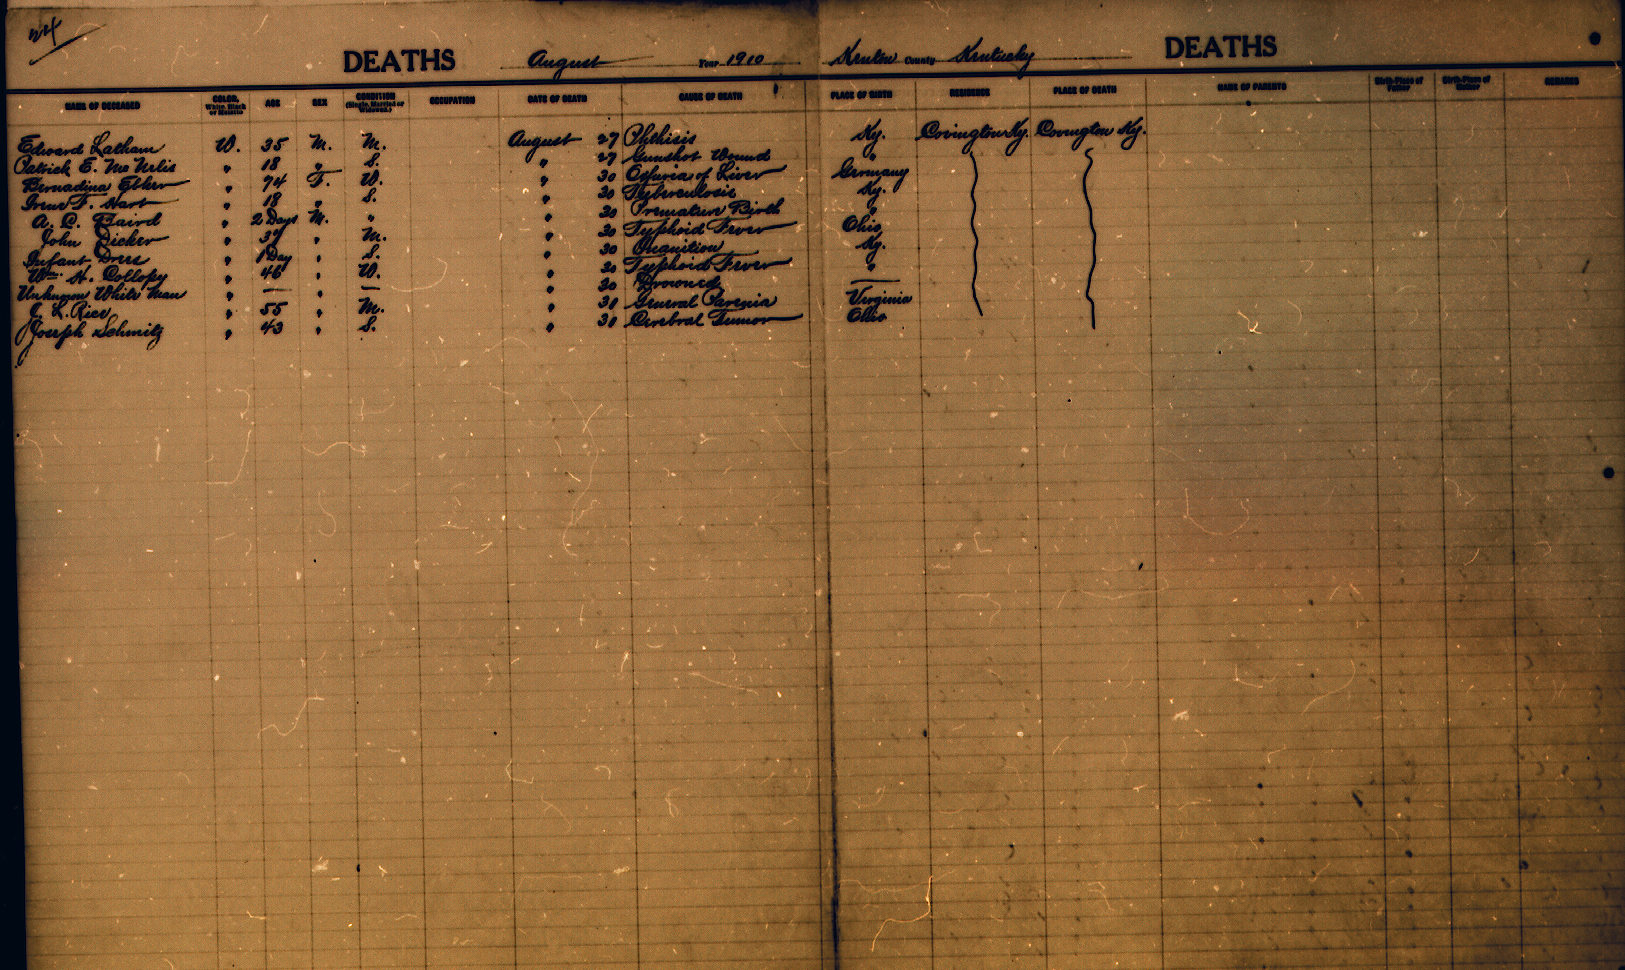 24
DEATHS August Year 1910 Kenton County Kentucky DEATHS
NAME OF DECEASED COLOR, White, Black or Mulatto AGE SEX CONDITION (Single, Married or Widowed.) OCCUPATION DATE OF DEATH CAUSE OF DEATH PLACE OF BIRTH RESIDENCE PLACE OF DEATH NAME OF PARENTS Birth-Place of Father Birth-Place of Mother REMARKS
Edward Latham W. 35 M. M. August 27 Phthisis Ky. Covington Ky. Covington Ky.
Patrick E. " 18 " S. " 27 Gunshot Wound "
Bernadina Elker " 74 F. W. " 30 of Liver Germany
Irene F. Hart " 18 " S. " 30 Tuberculosis Ky.
A. C. Baird " 2 Days M. " " 30 Premature Birth "
John Dicker " 37 " M. " 30 Typhoid Fever Ohio
Infant Dress " 1 Day " S. " 30 Inanition Ky.
Wm. H. Collopy " 46 " W. " 30 Typhoid Fever "
Unknown White Man " — " — " 30 Drowned —
J. L. Rice " 55 " M. " 31 General Paresia Virginia
Joseph Schmitz " 43 " S. " 30 Cerebral Tumor Ohio